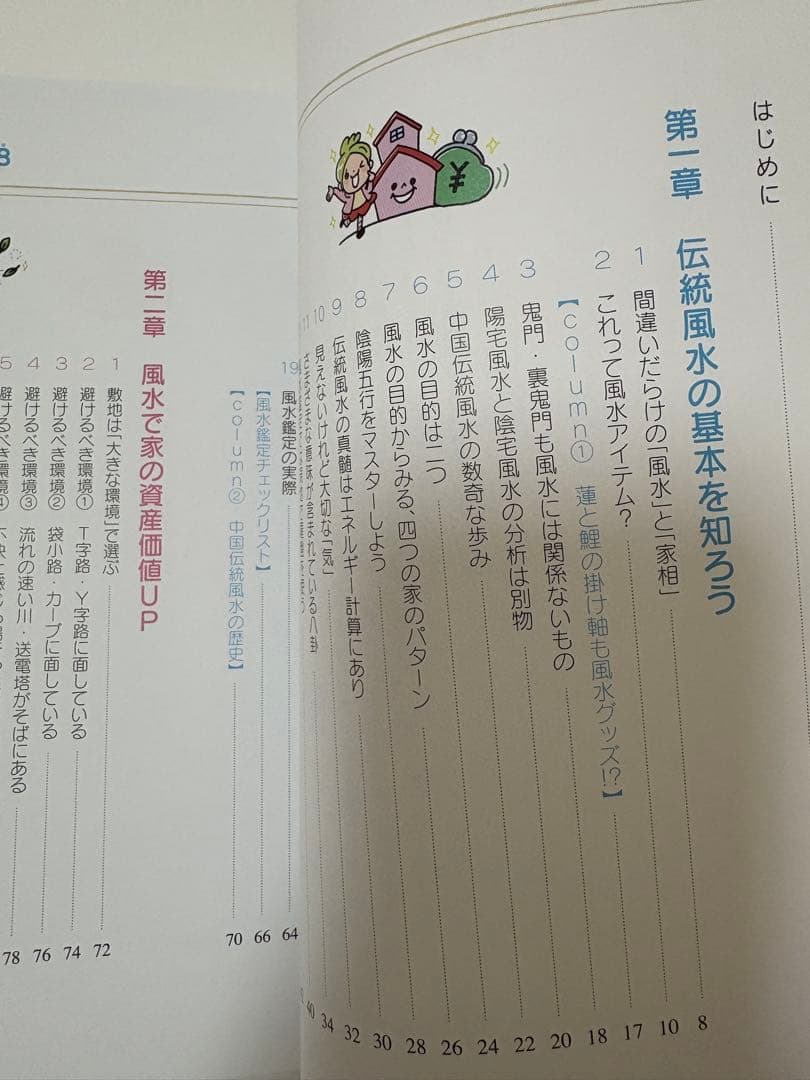 はじめに
第一章 伝統風水の基本を知ろう
1 間違いだらけの「風水」と「家相」 8
2 これって風水アイテム? 10
【column① 蓮と鯉の掛け軸も風水グッズ!?】 17
3 鬼門・裏鬼門も風水には関係ないもの 18
4 陽宅風水と陰宅風水の分析は別物 20
5 中国伝統風水の数奇な歩み 22
6 風水の目的は二つ 24
7 風水の目的からみる、四つの家のパターン 26
8 陰陽五行をマスターしよう 28
9 伝統風水の真髄はエネルギー計算にあり 30
10 見えないけれど大切な「気」 32
11 さまざまな意味が含まれている八卦 34
40
¥
19 風水鑑定の実際 64
【風水鑑定チェックリスト】 66
【column② 中国伝統風水の歴史】 70
第二章 風水で家の資産価値UP
1 敷地は「大きな環境」で選ぶ 72
2 避けるべき環境① T字路・Y字路に面している 74
3 避けるべき環境② 袋小路・カーブに面している 76
4 避けるべき環境③ 流れの速い川・送電塔がそばにある 78
5 避けるべき環境④